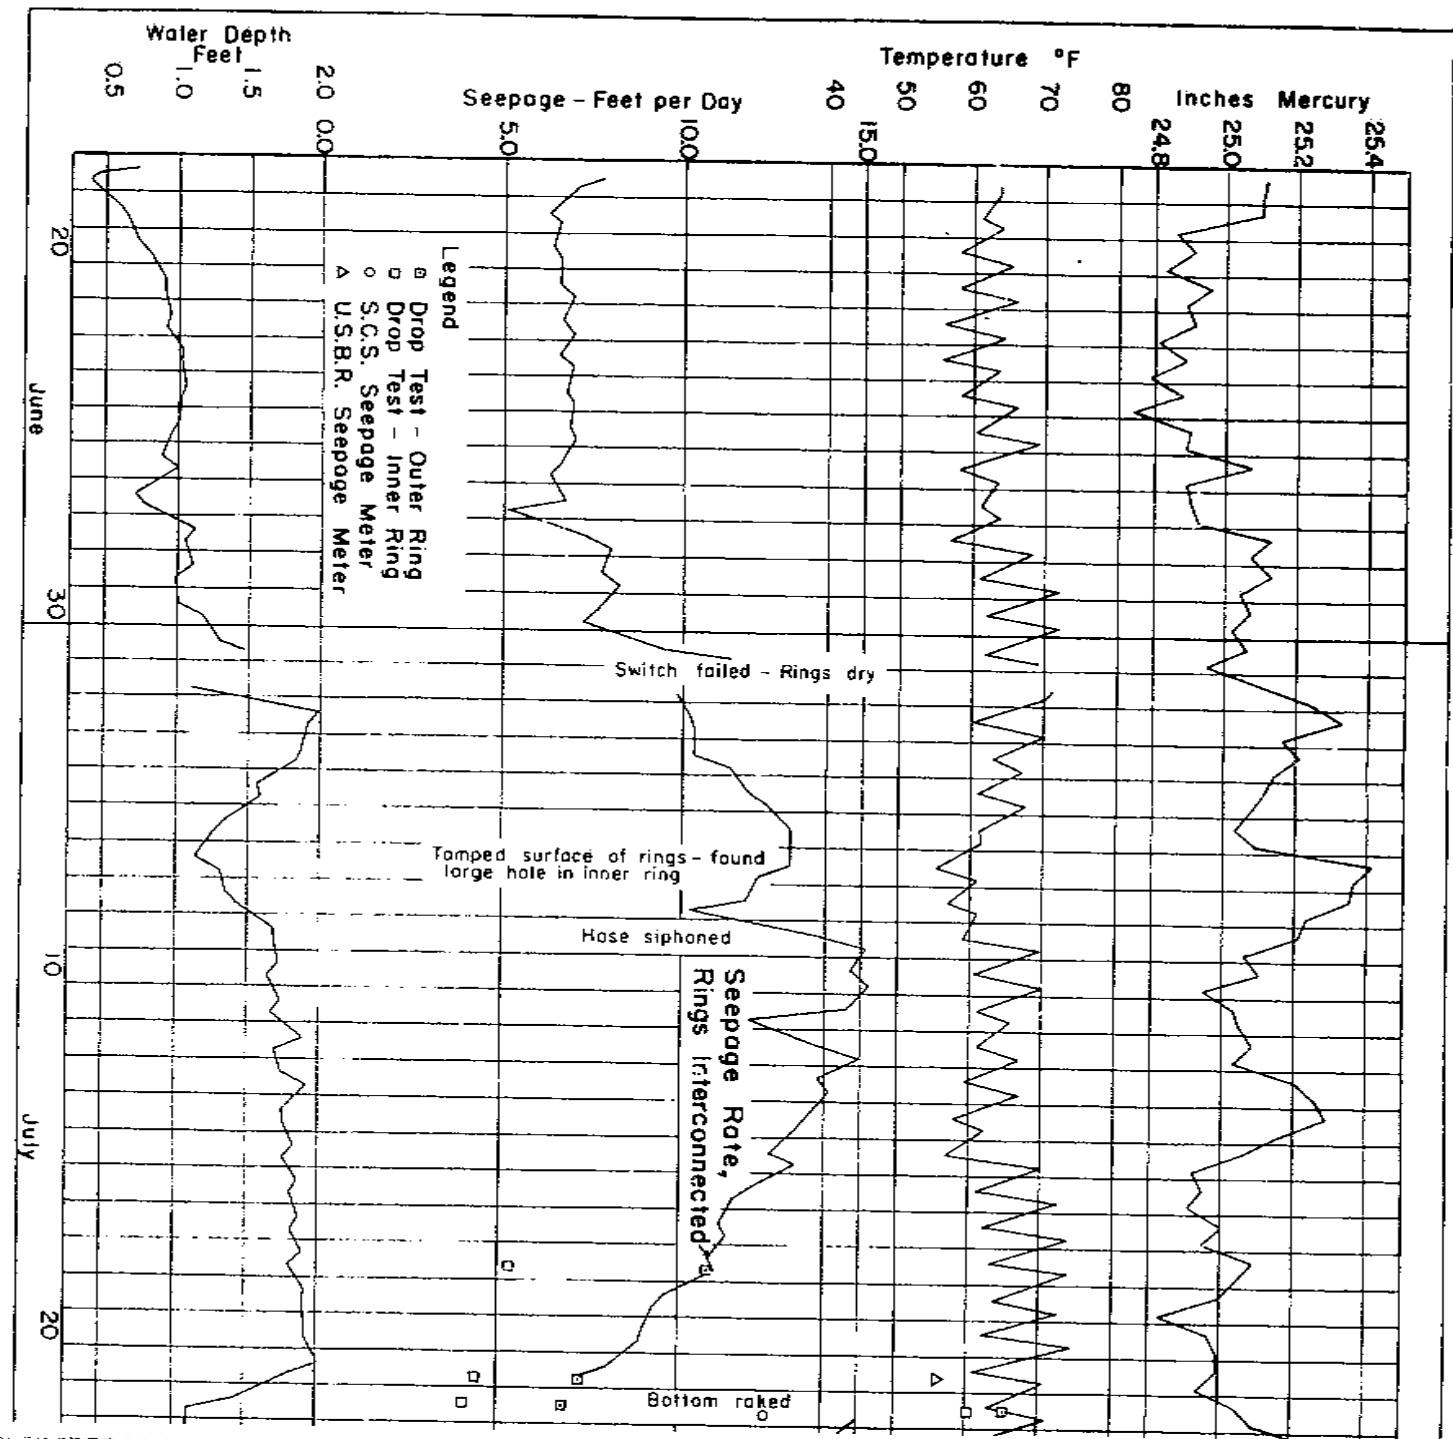 Water Depth
Feet
0.5
1.0
1.5
2.0
Seepage - Feet per Day
0.0
5.0
10.0
15.0
Temperature °F
40
50
60
70
80
Inches Mercury
24.8
25.0
25.2
25.4
Legend
Drop Test - Outer Ring
Drop Test - Inner Ring
S.C.S. Seepage Meter
U.S.B.R. Seepage Meter
20
June
30
Switch failed - Rings dry
Tamped surface of rings - found
large hole in inner ring
Hose siphoned
Seepage Rate,
Rings Interconnected
10
July
20
Bottom raked